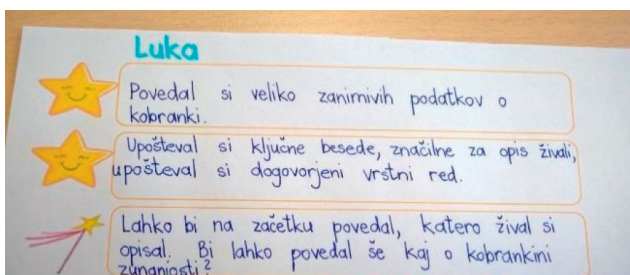 Luka
Povedal si veliko zanimivih podatkov o
kobranki.
Upošteval si ključne besede, značilne za opis živali,
upošteval si dogovorjeni vrstni red.
Lahko bi na začetku povedal, katero žival si
opisal. Bi lahko povedal še kaj o kobrankini
zunanjosti?